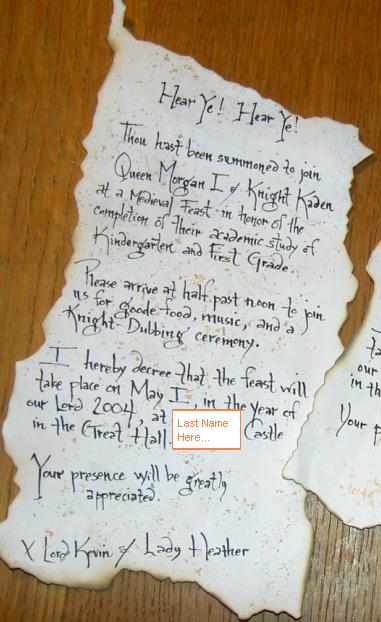 Hear Ye! Hear Ye!
Thou hast been summoned to join
Queen Morgan I & Knight Kaden
at a Medieval Feast in honor of the
completion of their academic study of
Kindergarten and First Grade.
Please arrive at half past noon to join
us for goode food, music, and a
Knight-Dubbing ceremony.
I hereby decree that the feast will
take place on May I, in the year of
our Lord 2004, at
in the Great Hall. Castle
Last Name
Here...
Your presence will be greatly
appreciated.
X Lord Kevin & Lady Heather
our
in th
Your p